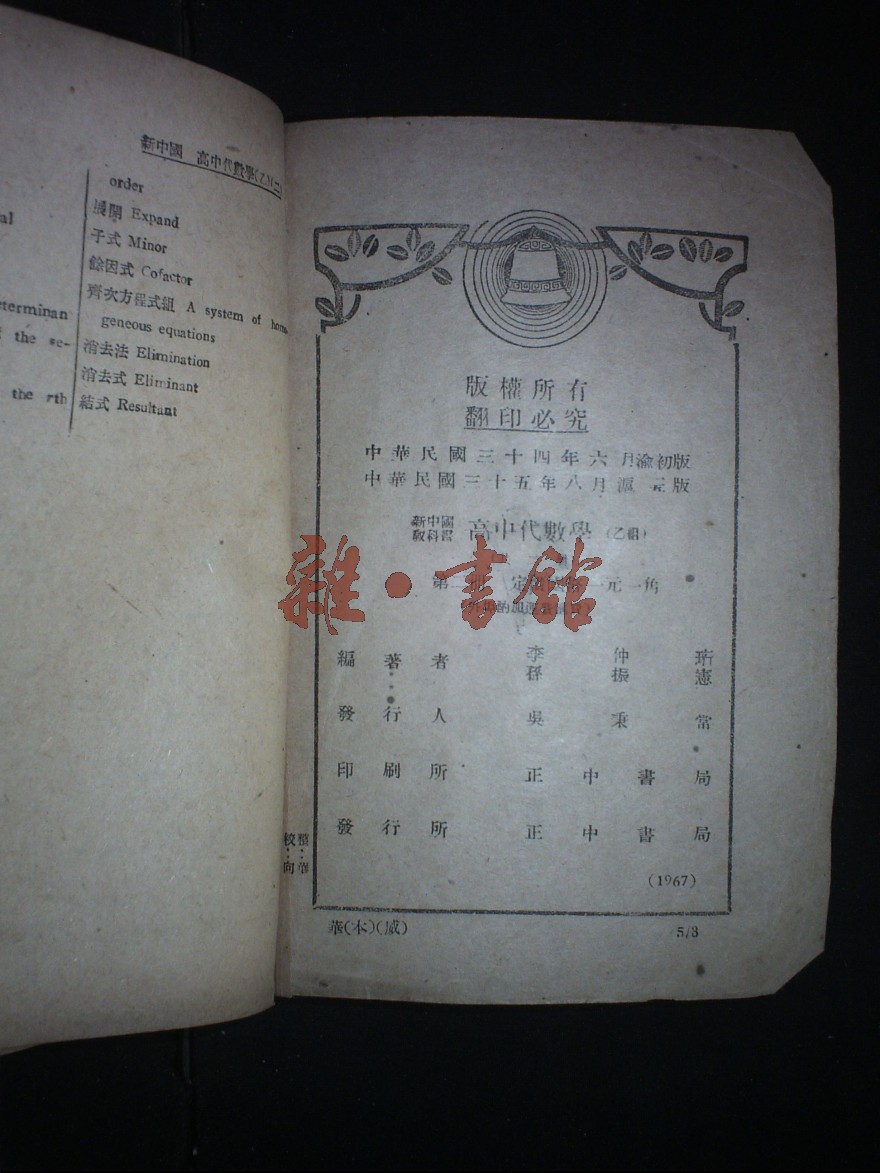 新中國 高中代數學(乙)(二)
al
eterminan
the se-
the rth
order
展開 Expand
子式 Minor
餘因式 Cofactor
齊次方程式組 A system of homo-
geneous equations
消去法 Elimination
消去式 Eliminant
結式 Resultant
版權所有
翻印必究
中華民國三十四年六月渝初版
中華民國三十五年八月滬 版
新中國
教科書 高中代數學 (乙組)
第二冊 定 一元一角
雜·書館
編著者 李仲
孫振憲
發行人 吳秉常
印刷所 正中書局
發行所 正中書局
校 整
向
(1967)
華(本)(威)
5/8